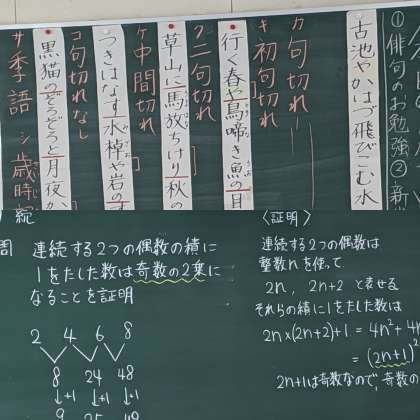 ①俳句のお勉強②新
古池やかはづ飛びこむ水
カ句切れ
行く春や鳥啼き魚の目
キ初句切れ
ク二句切れ
草山に馬放ちけり秋の
ケ中間切れ
つきはなす水棹や岩の
コ句切れなし
黒猫のぞろぞろと月夜か
サ季語 シ歳時
連続する2つの偶数の積に
1をたした数は奇数の2乗に
なることを証明
2 4 6 8
8 24 48
↓+1 ↓+1 ↓+1
9 25 49
〈証明〉
連続する2つの偶数は
整数nを使って
2n, 2n+2 と表せる
それらの積に1をたした数は
2n×(2n+2)+1 = 4n²+4n
= (2n+1)²
2n+1は奇数なので、奇数の